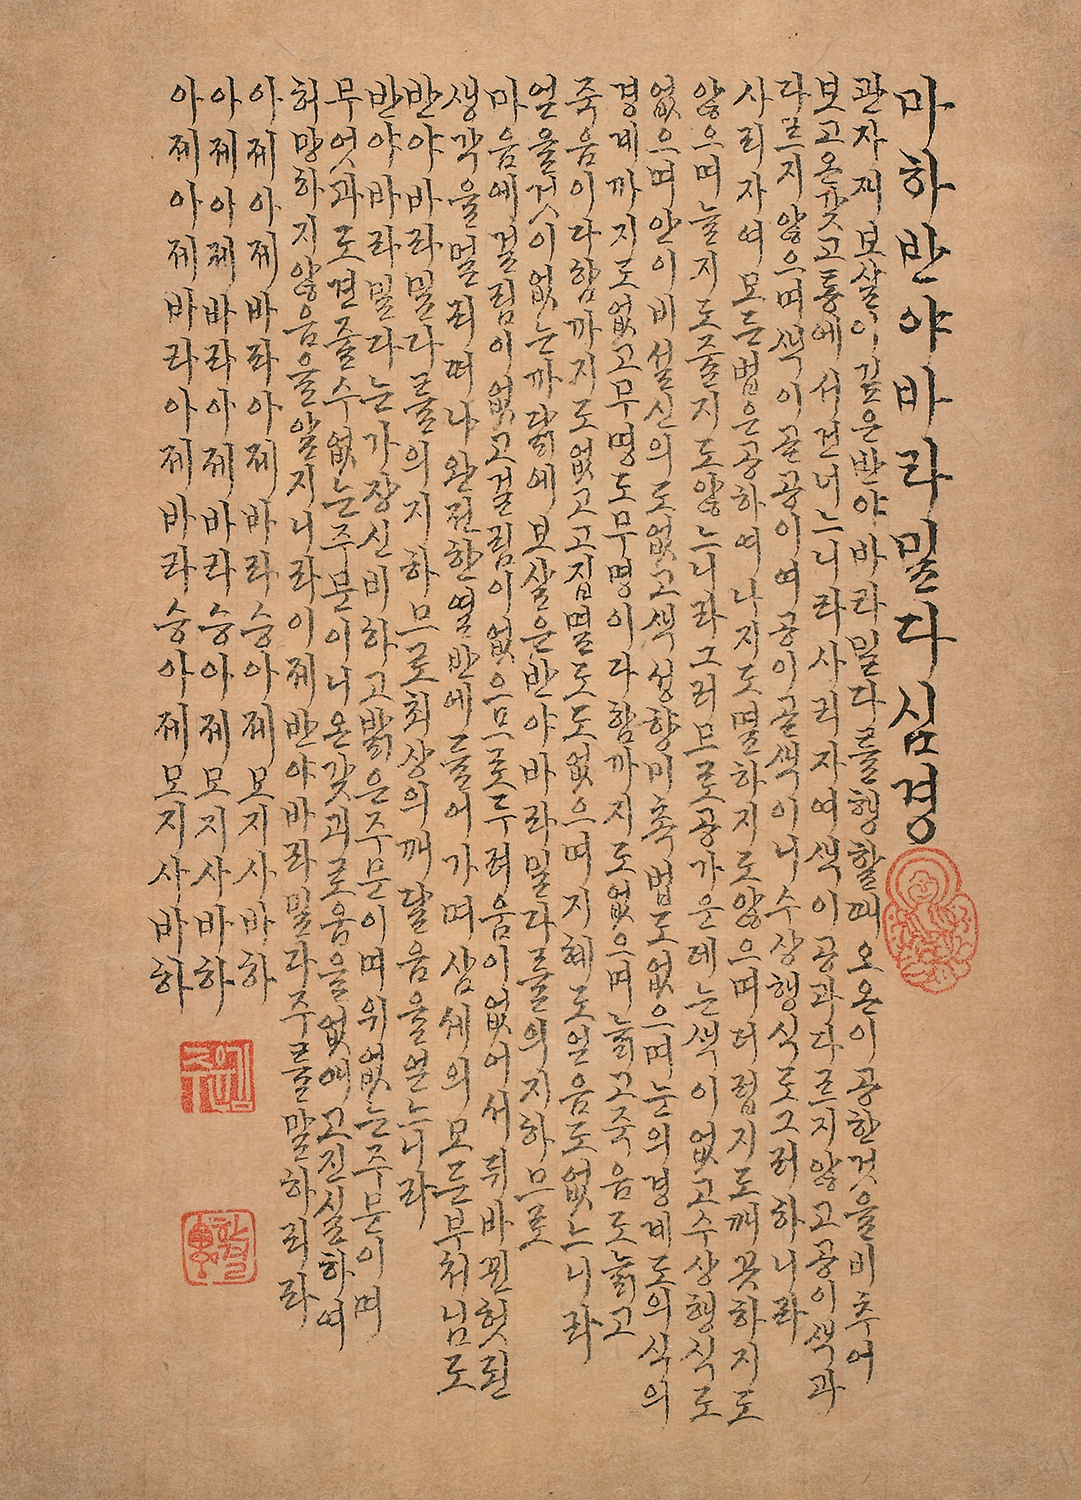 마하반야바라밀다심경
관자재보살이깊은반야바라밀다를행할때오온이공한것을비추어
보고온갖고통에서건너느니라사리자여색이공과다르지않고공이색과
다르지않으며색이곧공이여공이곧색이니수상행식도그러하니라
사리자여모든법은공하여나지도멸하지도않으며더럽지도깨끗하지도
않으며늘지도줄지도않느니라그러므로공가운데는색이없고수상행식도
없으며안이비설신의도없고색성향미촉법도없으며눈의경계도의식의
경계까지도없고무명도무명이다함까지도없으며늙고죽음도늙고
죽음이다함까지도없고고집멸도도없으며지혜도얻음도없느니라
얻을것이없는까닭에보살은반야바라밀다를의지하므로
마음에걸림이없고걸림이없으므로두려움이없어서뒤바뀐헛된
생각을멀리떠나완전한열반에들어가며삼세의모든부처님도
반야바라밀다를의지하므로최상의깨달음을얻느니라
반야바라밀다는가장신비하고밝은주문이며위없는주문이며
무엇과도견줄수없는주문이니온갖괴로움을없애고진실하여
허망하지않음을알지니라이제반야바라밀다주를말하리라
아제아제바라아제바라승아제모지사바하
아제아제바라아제바라승아제모지사바하
아제아제바라아제바라승아제모지사바하